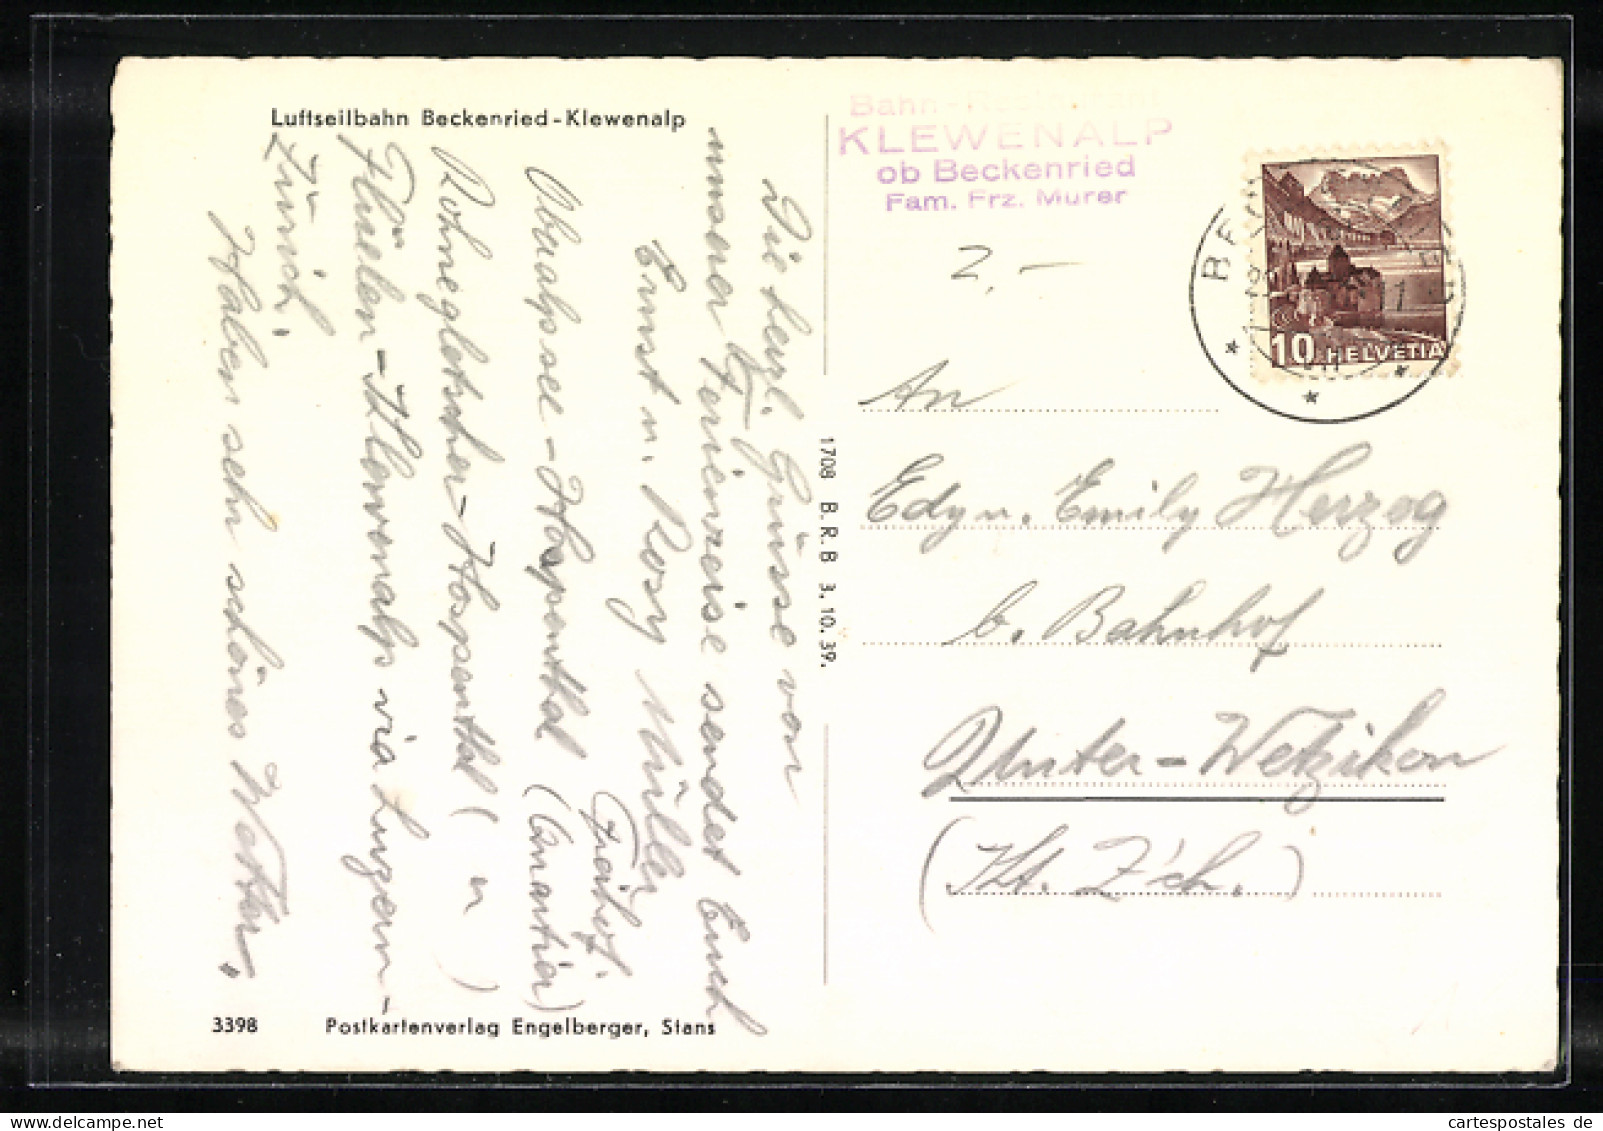 Luftseilbahn Beckenried-Klewenalp
Die herzl. Grüsse von
unserer Ferienreise sendet Euch
Ernst u. Rosy Müller
Freihof.
Oberalpsee - Hospenthal
Rohnegletscher - Hospenthal ( u )
Flüelen - Klewenalp via Luzern -
Zürich.
Haben sehr schönes Wetter.
3398 Postkartenverlag Engelberger, Stans
1708 B.R.B 3.10.39.
Bahn-Restaurant
KLEWENALP
ob Beckenried
Fam. Frz. Murer
2.-
10 HELVETIA
An
Edy u. Emily Herzog
b. Bahnhof
Unter-Wetzikon
(Kt. Z'ch.)
www.cartespostales.de